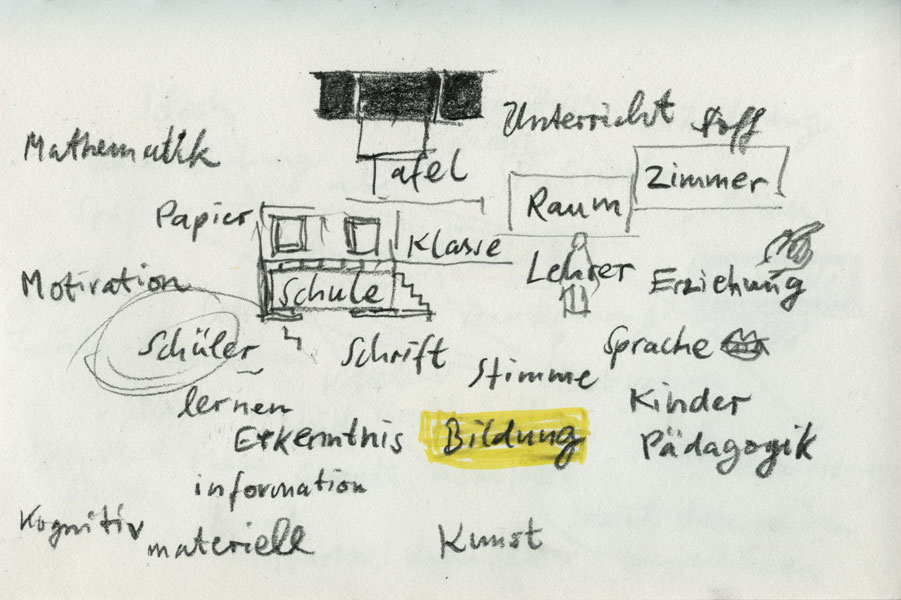 Unterricht Stoff
Mathematik
Tafel
Zimmer
Raum
Papier
Klasse
Motivation
Schule
Lehrer
Erziehung
Schüler
Schrift
Sprache
Stimme
lernen
Kinder
Erkenntnis
Bildung
Pädagogik
information
Kognitiv
materiell
Kunst